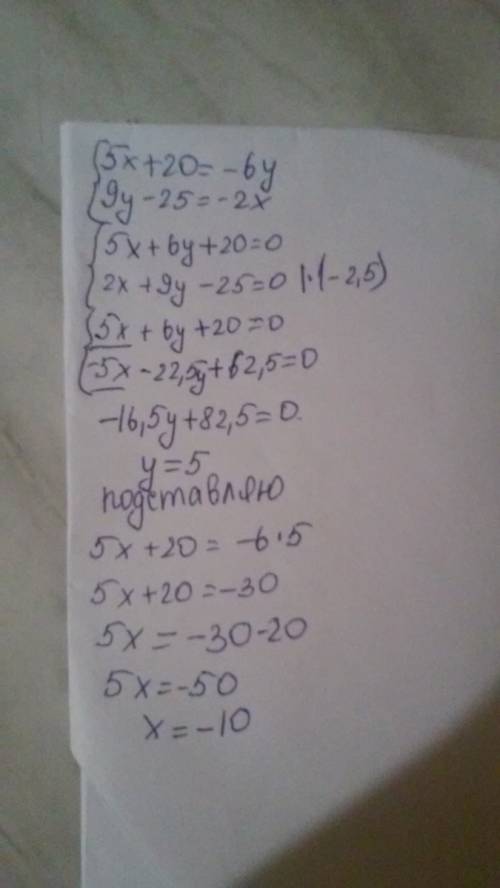 {5x+20=-6y
{9y-25=-2x
{5x+6y+20=0
{2x+9y-25=0 |·(-2,5)
{5x+6y+20=0
{-5x-22,5y+62,5=0
-16,5y+82,5=0.
y=5
подставляю
5x+20=-6·5
5x+20=-30
5x=-30-20
5x=-50
x=-10